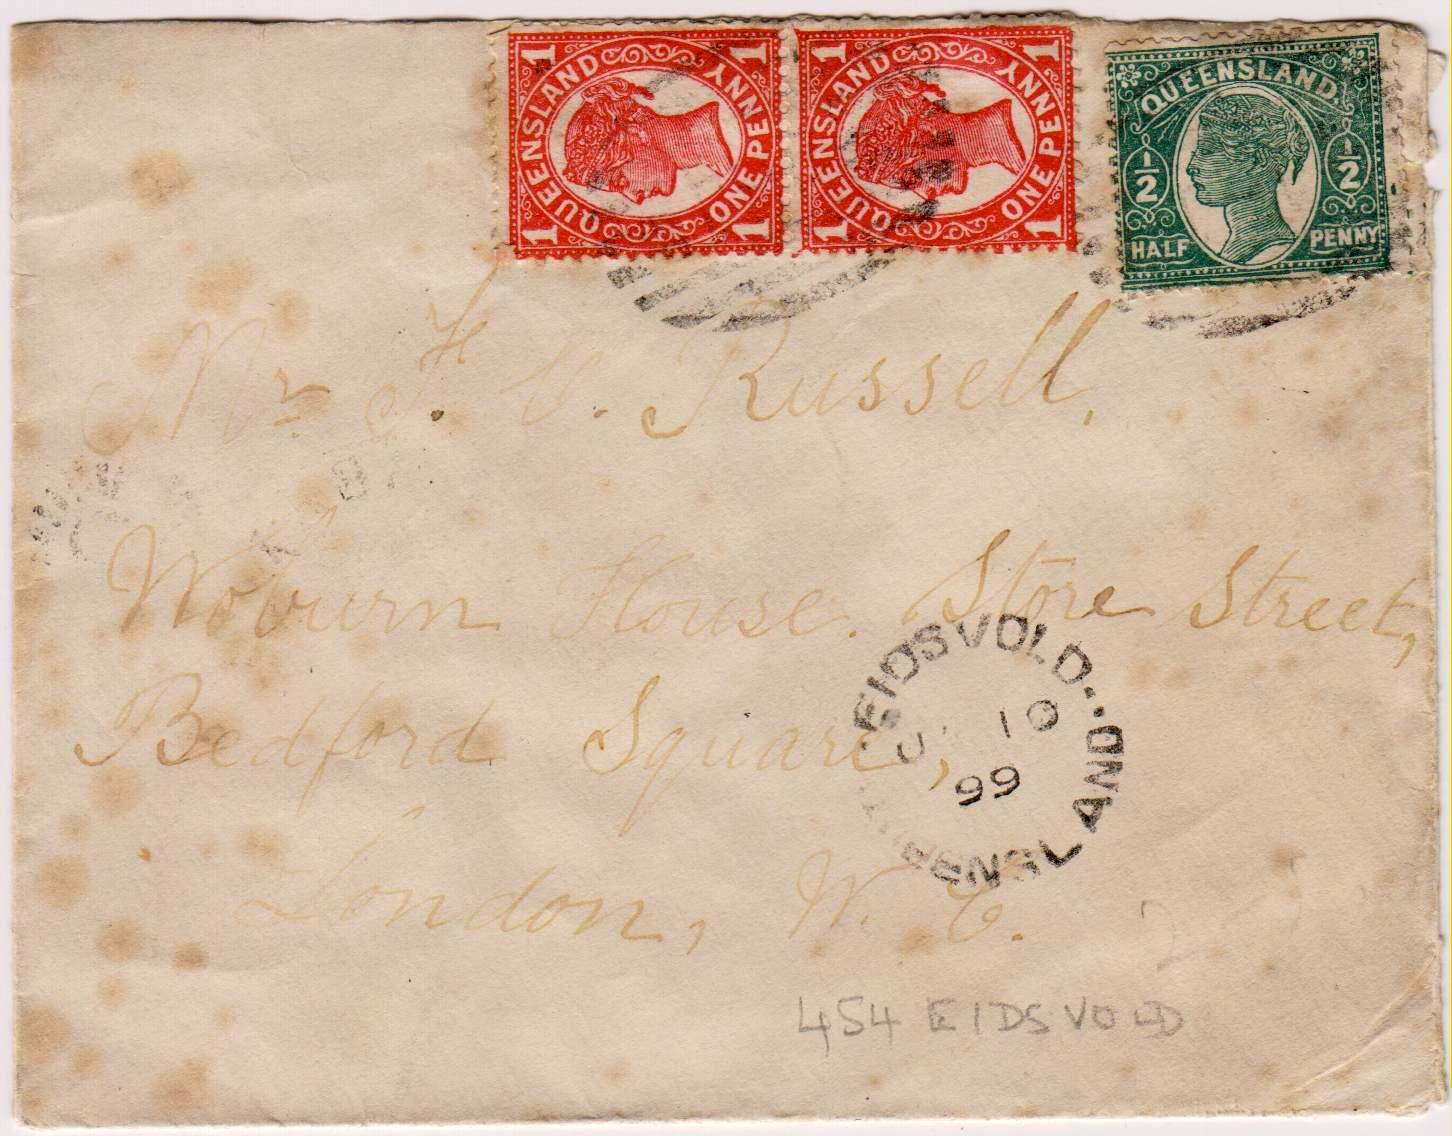 1 QUEENSLAND 1
1 ONE PENNY 1
1 QUEENSLAND 1
1 ONE PENNY 1
QUEENSLAND
1/2 1/2
HALF PENNY
Mr. F. Russell,
Woburn House. Store Street,
Bedford Square,
London, W. C.
EIDSVOLD
10
99
QUEENSLAND
454 EIDSVOLD